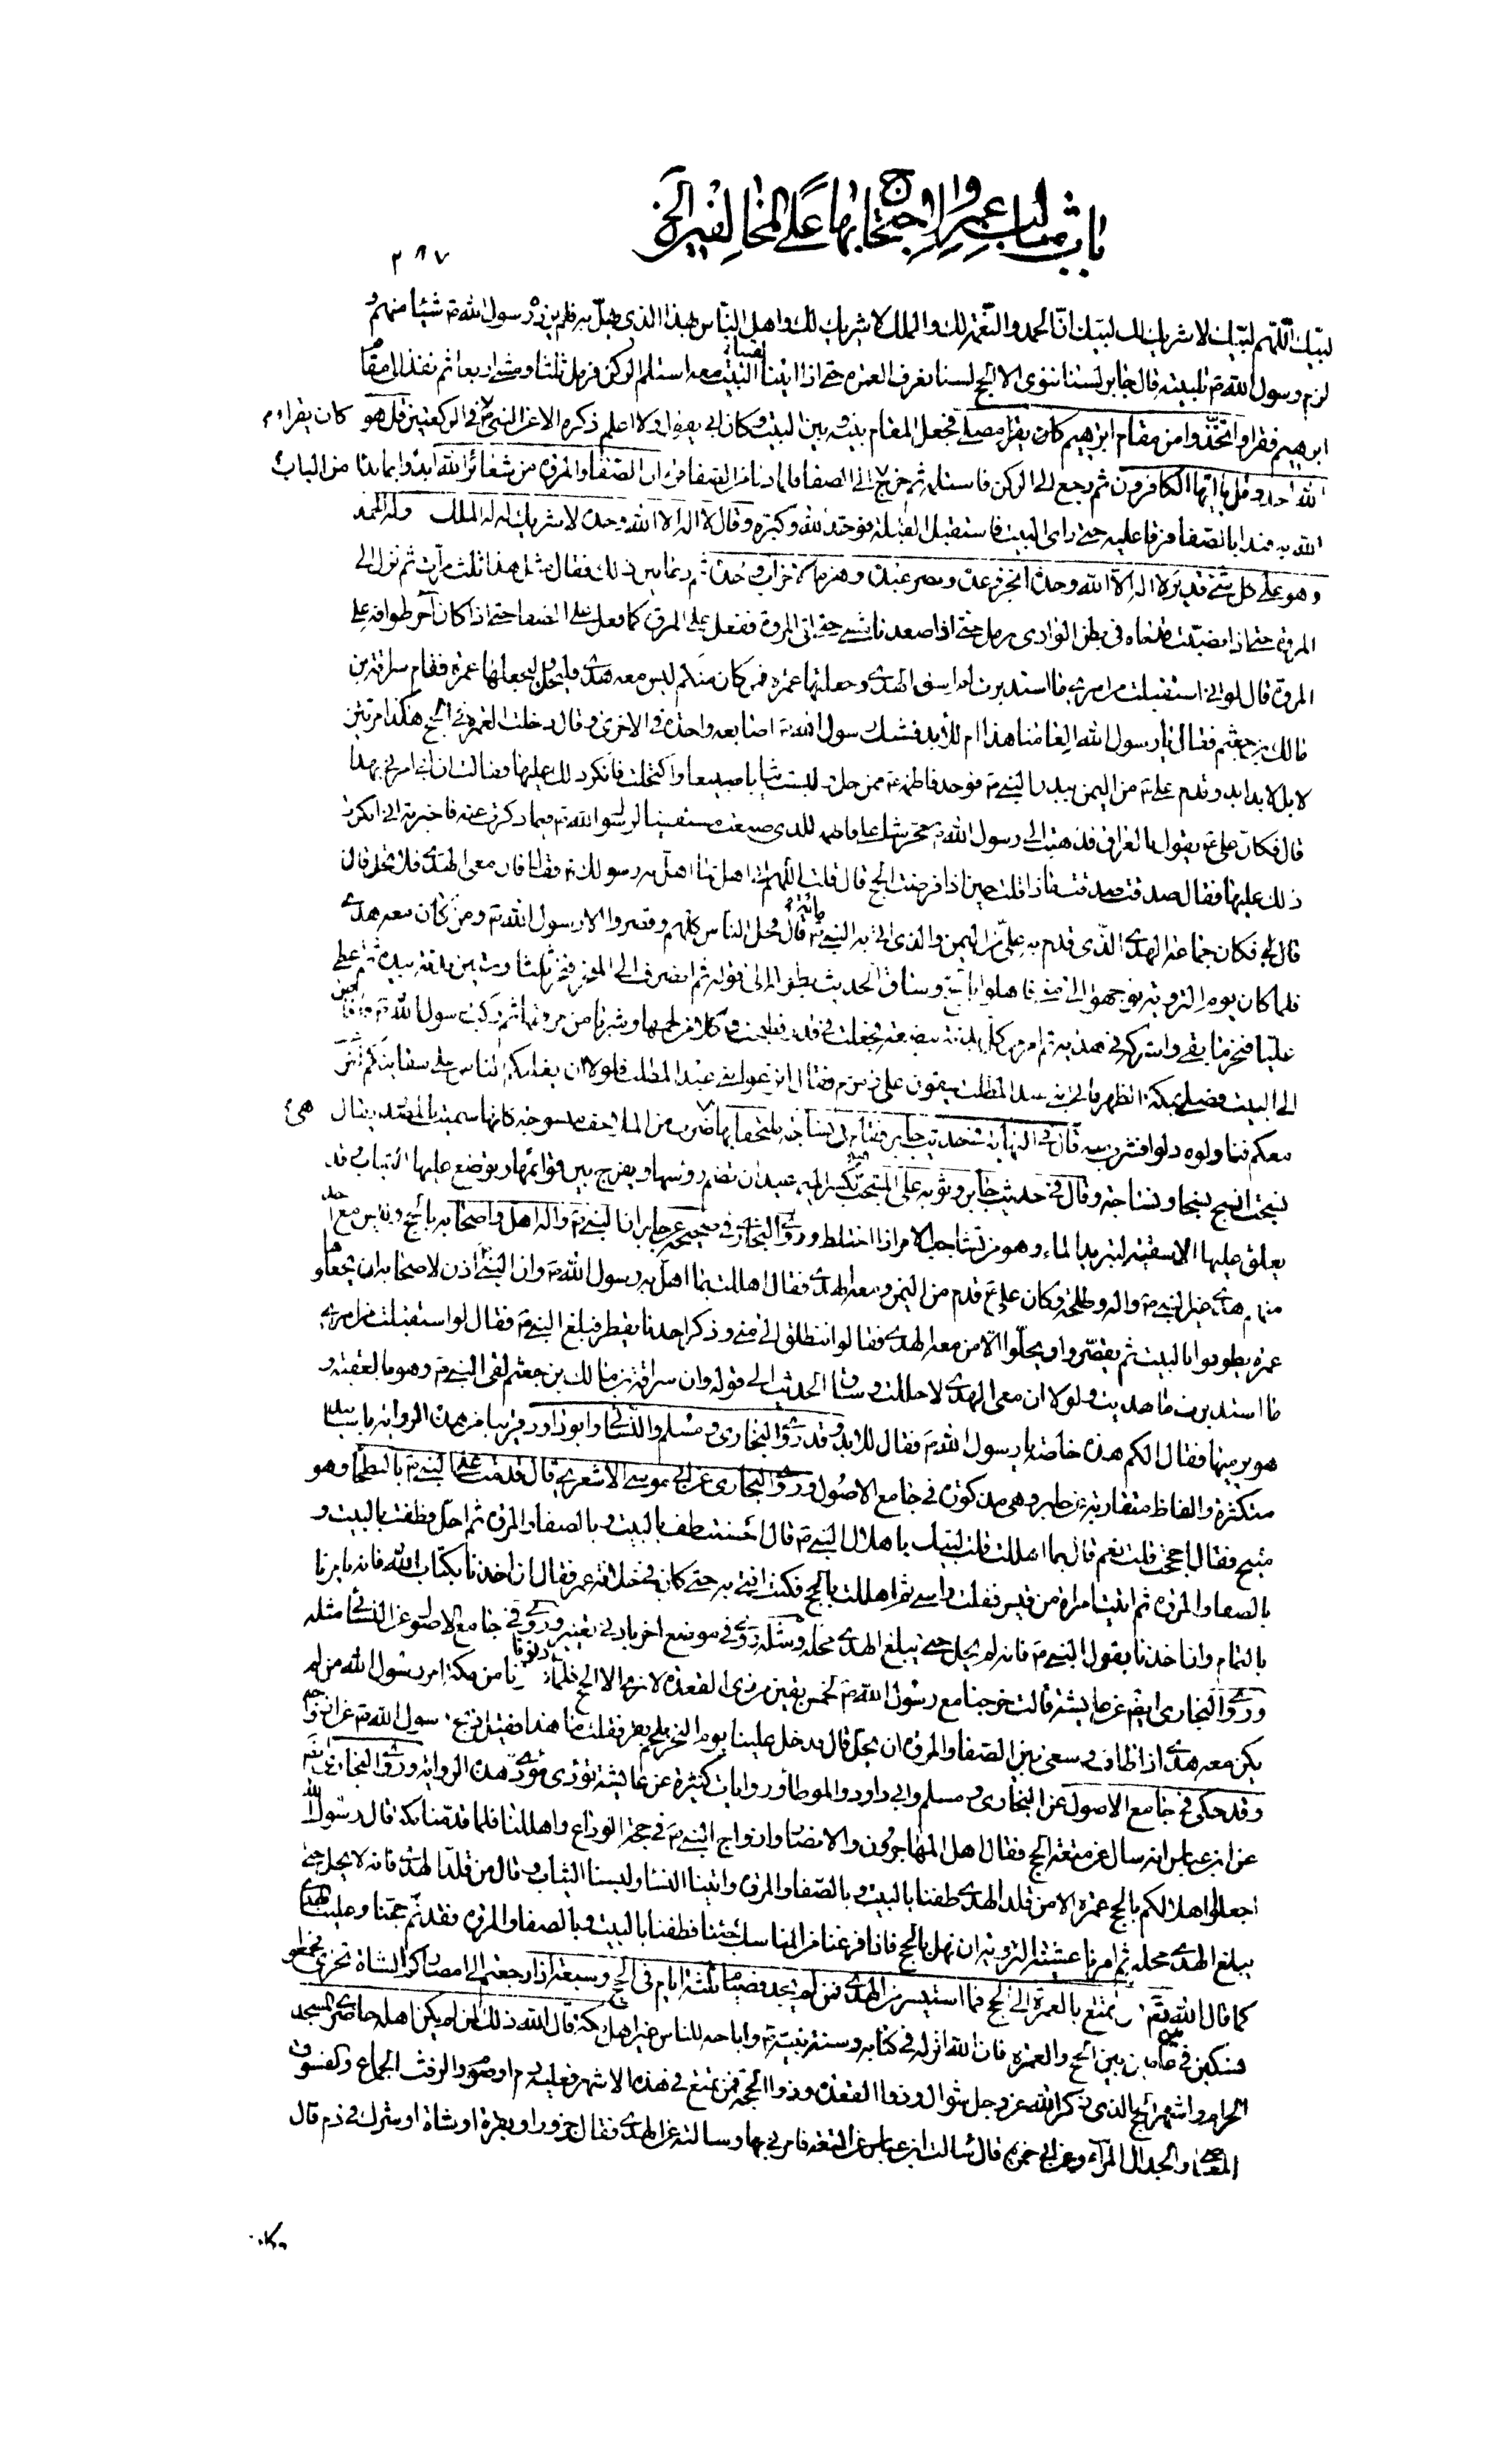 باب مثالب عمر والاحتجاج بها على المخالفين الخ
٢٨٧
لبّيك اللّهمّ لبّيك لا شريك لك لبّيك انّ الحمد والنّعمة لك والملك لا شريك لك واهل النّاس بهذا الذى يهلّ به فلم يزد رسول الله ص شيئا منهم و
لزم رسول الله ص تلبيته قال جابر لسنا ننوى الا الحج لسنا نعرف العمرة حتى اذا اتينا البيت معه استلم الركن فرمل ثلثا ومشى اربعا ثم نفذ الى مقام
ابرهيم فقرا واتّخذوا من مقام ابرهيم مصلى فجعل المقام بينه وبين البيت وكان ابى يقول ولا اعلم ذكره الا عن النبى ص فى الركعتين قل هو كان يقرا
الله احد وقل يا ايّها الكافرون ثم رجع الى الركن فاستلمه ثم خرج الى الصفا فلما دنا من الصفا قرا ان الصّفا والمروة من شعائر الله ابدؤا بما بدا من الباب
الله به فبدا بالصّفا فرقا عليه حتى راى البيت فاستقبل القبلة فوحّد الله وكبّره وقال لا اله الا الله وحده لا شريك له له الملك وله الحمد
وهو على كل شىء قدير لا اله الا الله وحده انجز وعده ونصر عبده وهزم الاحزاب وحده ثم دعا بين ذلك فقال مثل هذا ثلث مرات ثم نزل الى
المروة حتى اذا انصبّت قدماه فى بطن الوادى رمل حتى اذا صعدنا مشى حتى اتى المروة ففعل على المروة كما فعل على الصفا حتى اذا كان آخر طوافه على
المروة قال لو انى استقبلت من امرى ما استدبرت لم اسق الهدى وجعلتها عمرة فمن كان منكم ليس معه هدى فليحل وليجعلها عمرة فقام سراقة بن
مالك بن جعثم فقال يا رسول الله العامنا هذا ام للابد فشبك رسول الله ص اصابعه واحدة فى الاخرى وقال دخلت العمرة فى الحج هكذا مرتين
لا بل لابد ابد وقدم على ع من اليمن ببدن النبى ص فوجد فاطمة ع ممن حل ولبست ثيابا صبيغا واكتحلت فانكر ذلك عليها فقالت ان ابى امرنى بهذا
قال فكان على ع يقول بالعراق فذهبت الى رسول الله ص محرشا على فاطمة للذى صنعت مستفتيا لرسول الله ص فيما ذكرت عنه فاخبرته انى انكرت
ذلك عليها فقال صدقت صدقت ماذا قلت حين اذا فرضت الحج قال قلت اللهم انى اهل بما اهل به رسولك ص فقال فان معى الهدى فلا تحل قال
قال فكان جماعة الهدى الذى قدم به على من اليمن والذى اتى به النبى ص مائة قال فحل الناس كلهم وقصروا الا رسول الله ص ومن كان معه هدى
فلما كان يوم التروية توجهوا الى منى فاهلوا بالحج وساق الحديث بطوله الى قوله ثم انصرف الى المنحر فنحر ثلثا وستين بدنة بيده ثم اعطى
عليا فنحر ما بقى واشركه فى هديه ثم امر من كل بدنة ببضعة فجعلت فى قدر فطبخت فاكلا من لحمها وشربا من مرقها ثم ركب رسول الله ص فافاض
الى البيت فصلى بمكة الظهر فاتى بنى عبد المطلب يسقون على زمزم فقال انزعوا بنى عبد المطلب فلولا ان يغلبكم الناس على سقايتكم لنزعت
معكم فناولوه دلوا فشرب منه قال فى النهاية فى حديث جابر فقام فى نساجة ملتحفا بها ضرب من الملاحف منسوجة كانها سميت بالمصدر يقال هى
نسجت انسج نسجا ونساجة وقال فى حديث جابر وثوبه على المشجب بكسر الميم عيدان تضم رؤسها ويفرج بين قوائمها وتوضع عليها الثياب وقد
يعلق عليها الاسقية لتبريد الماء وهو من تشاجب الامر اذا اختلط وروى البخارى فى صحيحه عن جابر ان النبى ص واله اهل واصحابه بالحج وليس مع احد
منهم هدى غير النبى ص واله وطلحة وكان على ع قدم من اليمن ومعه الهدى فقال اهللت بما اهل به رسول الله ص وان النبى ص اذن لاصحابه ان يجعلوها
عمرة يطوفوا بالبيت ثم يقصّروا ويحلّوا الا من معه الهدى فقالوا ننطلق الى منى وذكر احدنا يقطر فبلغ النبى ص فقال لو استقبلت من امرى
ما استدبرت ما هديت ولولا ان معى الهدى لاحللت وساق الحديث الى قوله وان سراقة بن مالك بن جعثم لقى النبى ص وهو بالعقبة و
هو يرميها فقال الكم هذه خاصة يا رسول الله ص فقال للابد وقد روى البخارى ومسلم والنسائى وابو داود قريبا من هذه الرواية باسانيد
متكثرة والفاظ متقاربة عن جابر وهى مذكورة فى جامع الاصول وروى البخارى عن ابى موسى الاشعرى قال قدمت على النبى ص بالبطحا وهو
منيخ فقال احججت قلت نعم قال بما اهللت قلت لبيك باهلال النبى ص قال احسنت طف بالبيت وبالصفا والمروة ثم احل فطفت بالبيت و
بالصفا والمروة ثم اتيت امراة من قيس ففلت راسى ثم اهللت بالحج فكنت افتى به حتى كان فى خلافة عمر فقال ان اخذنا بكتاب الله فانه يامرنا
بالتمام وان اخذنا بقول النبى ص فانه لم يحل حتى يبلغ الهدى محله ومثله روى فى موضع اخر بادنى تغيير وروى فى جامع الاصول عن النسائى مثله
وروى البخارى ايضا عن عايشة قالت خرجنا مع رسول الله ص لخمس بقين من ذى القعدة لا نرى الا الحج فلما دنونا من مكة امر رسول الله من لم
يكن معه هدى اذا طاف وسعى بين الصفا والمروة ان يحل قال فدخل علينا يوم النحر بلحم بقر فقلت ما هذا فقيل نحر رسول الله ص عن ازواجه
وقد حكى فى جامع الاصول عن البخارى ومسلم وابى داود والموطأ روايات كثيرة عن عايشة تؤدى مؤدى هذه الرواية وروى البخارى
عن ابن عباس انه سال عن متعة الحج فقال اهل المهاجرون والانصار وازواج النبى ص فى حجة الوداع واهللنا فلما قدمنا مكة قال رسول الله
اجعلوا اهلالكم بالحج عمرة الا من قلد الهدى طفنا بالبيت وبالصفا والمروة واتينا النسا ولبسنا الثياب وقال من قلد الهدى فانه لا يحل حتى
يبلغ الهدى محله ثم امرنا عشية التروية ان نهل بالحج فاذا فرغنا من المناسك جئنا فطفنا بالبيت وبالصفا والمروة فقد تم حجنا وعلينا الهدى
كما قال الله تع من تمتع بالعمرة الى الحج فما استيسر من الهدى فمن لم يجد فصيام ثلثة ايام فى الحج وسبعة اذا رجعتم الى امصاركم الشاة تجزى فجمعوا
نسكين فى عام بين الحج والعمرة فان الله انزله فى كتابه وسنة نبيه ص واباحه للناس غير اهل مكة قال الله ذلك لمن لم يكن اهله حاضرى المسجد
الحرام واشهر الحج الذى ذكر الله عز وجل شوال وذوا القعدة وذوا الحجة فمن تمتع فى هذه الاشهر فعليه دم او صوم والرفث الجماع والفسوق
المعاصى والجدال المرآء وعن ابى حمزة قال سالت ابن عباس عن المتعة فامرنى بها وسالته عن الهدى فقال جزور او بقرة او شاة او شرك فى دم قال